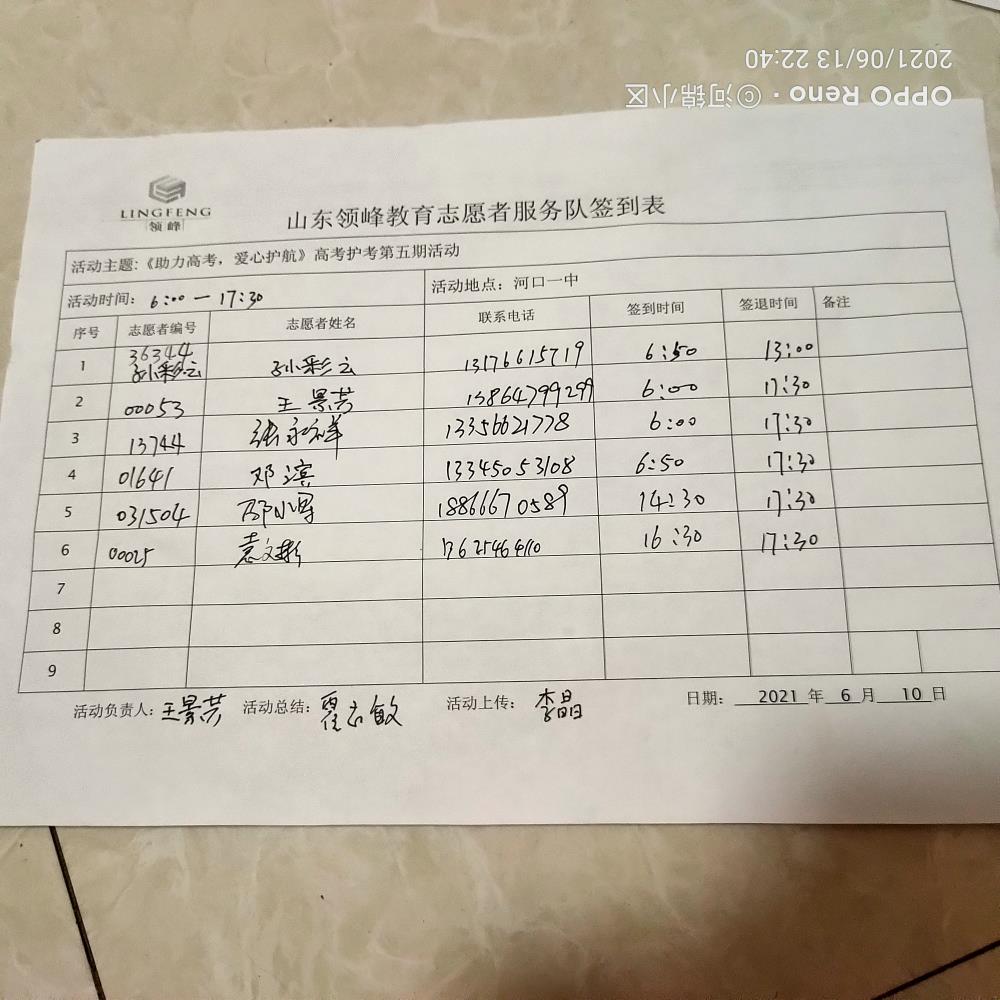 2021/06/13 22:40
OPPO Reno · ©河锦小区
LINGFENG
领峰
山东领峰教育志愿者服务队签到表
活动主题:《助力高考，爱心护航》高考护考第五期活动
活动时间： 6:00 — 17:30 活动地点：河口一中
序号 志愿者编号 志愿者姓名 联系电话 签到时间 签退时间 备注
1 36344 孙彩云 孙彩云 13176615719 6:50 13:00
2 00053 王景芳 13864799299 6:00 17:30
3 13744 张永祥 13356621778 6:00 17:30
4 01641 邓滨 13345053108 6:50 17:30
5 031504 邵小军 18866670589 14:30 17:30
6 00025 袁文彬 17625464110 16:30 17:30
7
8
9
活动负责人：王景芳 活动总结： 敏 活动上传： 李晶 日期： 2021 年 6 月 10 日